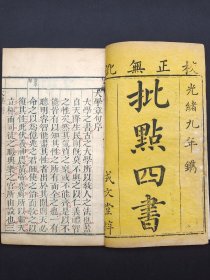 校正無訛
光緒九年鐫
批點四書
成文堂梓
大學章句序
大學之書古之大學所以教人之法也蓋
自天降生民則既莫不與之以仁義禮智
之性矣然其氣質之稟或不能齊是以不
能皆有以知其性之所有而全之也一有
聰明睿智能盡其性者出於其間則天必
命之以為億兆之君師使之治而教之以
復其性此伏羲神農黃帝堯舜所以繼天
立極而司徒之職典樂之官所由設也三